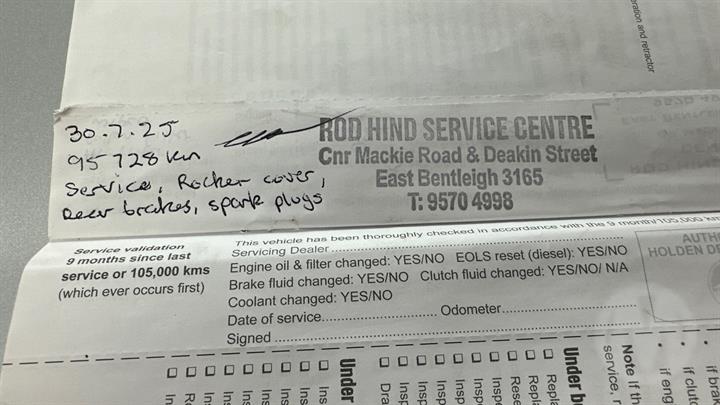 30.7.25
95728 km
Service, Rocker cover,
Rear brakes, spark plugs
ROD HIND SERVICE CENTRE
Cnr Mackie Road & Deakin Street
East Bentleigh 3165
T: 9570 4998
eration and retractor
Service validation
9 months since last
service or 105,000 kms
(which ever occurs first)
This vehicle has been thoroughly checked in accordance with the 9 month/105,000 km
Servicing Dealer
Engine oil & filter changed: YES/NO EOLS reset (diesel): YES/NO
Brake fluid changed: YES/NO Clutch fluid changed: YES/NO/ N/A
Coolant changed: YES/NO
Date of service Odometer
Signed
AUTH
HOLDEN DE
Under
Under b
Note If th
service, r
if brak
if clutc
if eng
Repla
Repla
Rese
Insp
Insp
Insp
Insp
Insp
Insp
Dra
Ins
Ins
Ins
Ins
Ins
Ins